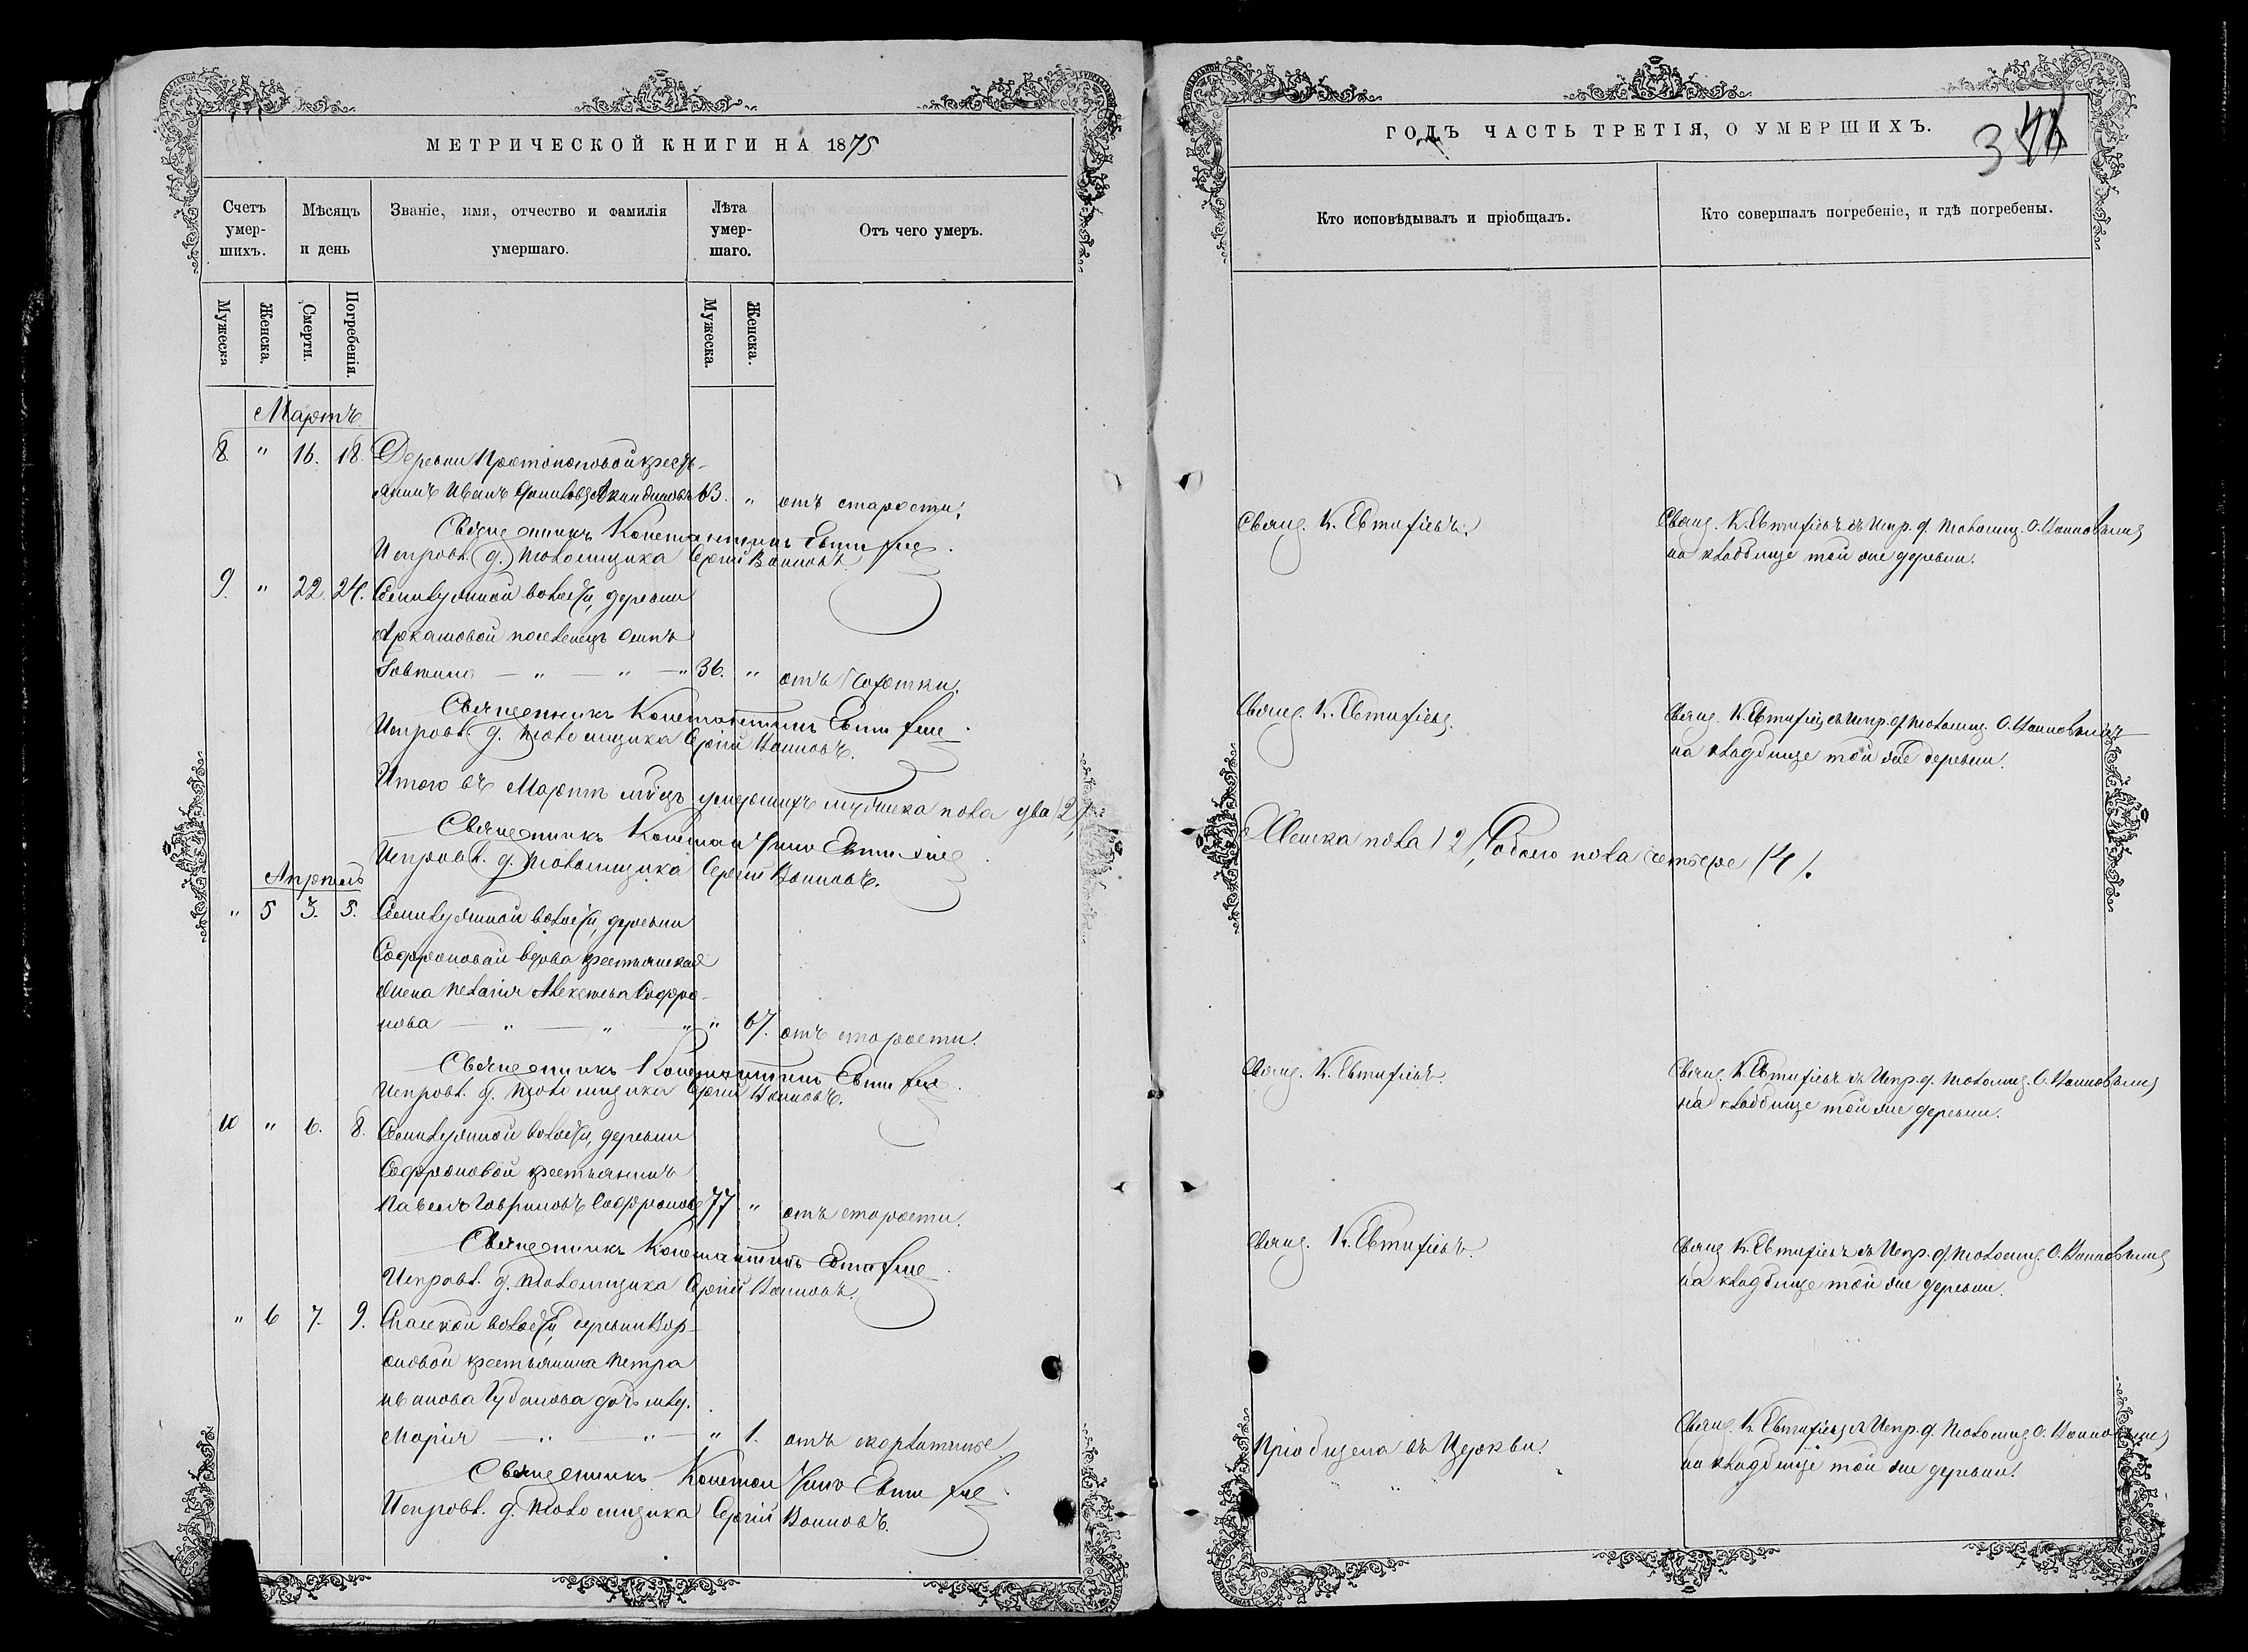 МЕТРИЧЕСКОЙ КНИГИ НА 1875
Счетъ умер-шихъ.
Мѣсяцъ и день
Званіе, имя, отчество и фамилія умершаго.
Лѣта умер-шаго.
Отъ чего умеръ.
Мужеска
Женска.
Смерти.
Погребенія.
Мужеска.
Женска.
Мартъ
8. " 16. 18. Деревни Протопоповой кресть-
янинъ Иванъ 63. " отъ старости.
Священникъ Константинъ Евтифіев
Исправл. д. псаломщика Сергій Воиновъ.
9. " 22. 24. волости, деревни
Аркашовой поселенецъ Осипъ
— " — " — " 36. " отъ чахотки.
Священникъ Константинъ Евтифіев
Исправл. д. псаломщика Сергій Воиновъ.
Итого въ Мартѣ мѣсяцѣ умершихъ мужеска пола два /2/,
Священникъ Константинъ Евтифіев
Исправл. д. псаломщика Сергій Воиновъ.
Апрѣль
" 5 3. 5. волости, деревни
Софроновой вдова крестьянская
жена Пелагія Алексѣева Софро-
нова — " — " — " " 67. отъ старости.
Священникъ Константинъ Евтифіев
Исправл. д. псаломщика Сергій Воиновъ.
10 " 6. 8. волости, деревни
Софроновой крестьянинъ
Павелъ Гавриловъ Софроновъ 77 " отъ старости.
Священникъ Константинъ Евтифіев
Исправл. д. псаломщика Сергій Воиновъ.
" 6 7. 9. Спаской волости, деревни
крестьянина Петра
Иванова Губанова дочь млад.
Марія — " — " — " 1. отъ скорлатины
Священникъ Константинъ Евтифіев
Исправл. д. псаломщика Сергій Воиновъ.
ГОДЪ ЧАСТЬ ТРЕТІЯ, О УМЕРШИХЪ.
Кто исповѣдывалъ и пріобщалъ.
Кто совершалъ погребеніе, и гдѣ погребены.
Свящ. К. Евтифіевъ.
Свящ. К. Евтифіевъ съ Испр. д. псаломщ. С. Воиновымъ
на кладбище той же деревни.
Свящ. К. Евтифіевъ.
Свящ. К. Евтифіевъ съ Испр. д. псаломщ. С. Воиновымъ
на кладбище той же деревни.
Женска пола /2/, обоего пола четыре /4/.
Свящ. К. Евтифіевъ.
Свящ. К. Евтифіевъ съ Испр. д. псаломщ. С. Воиновымъ
на кладбище той же деревни.
Свящ. К. Евтифіевъ.
Свящ. К. Евтифіевъ съ Испр. д. псаломщ. С. Воиновымъ
на кладбище той же деревни.
Пріобщена въ Церкви.
Свящ. К. Евтифіевъ съ Испр. д. псаломщ. С. Воиновымъ
на кладбище той же деревни.